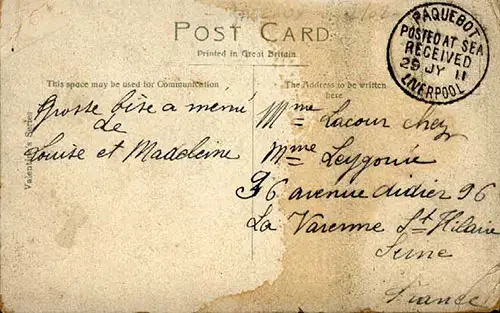 POST CARD
Printed in Great Britain.
PAQUEBOT
POSTED AT SEA
RECEIVED
29 JY 11
LIVERPOOL
This space may be used for Communication
The Address to be written
here
Valentine's Series
Grosse bise a mémé
de
Louise et Madeleine
Mme Lacour chez
Mme Leygonie
96 avenue didier 96
La Varenne St Hilaire
Seine
France